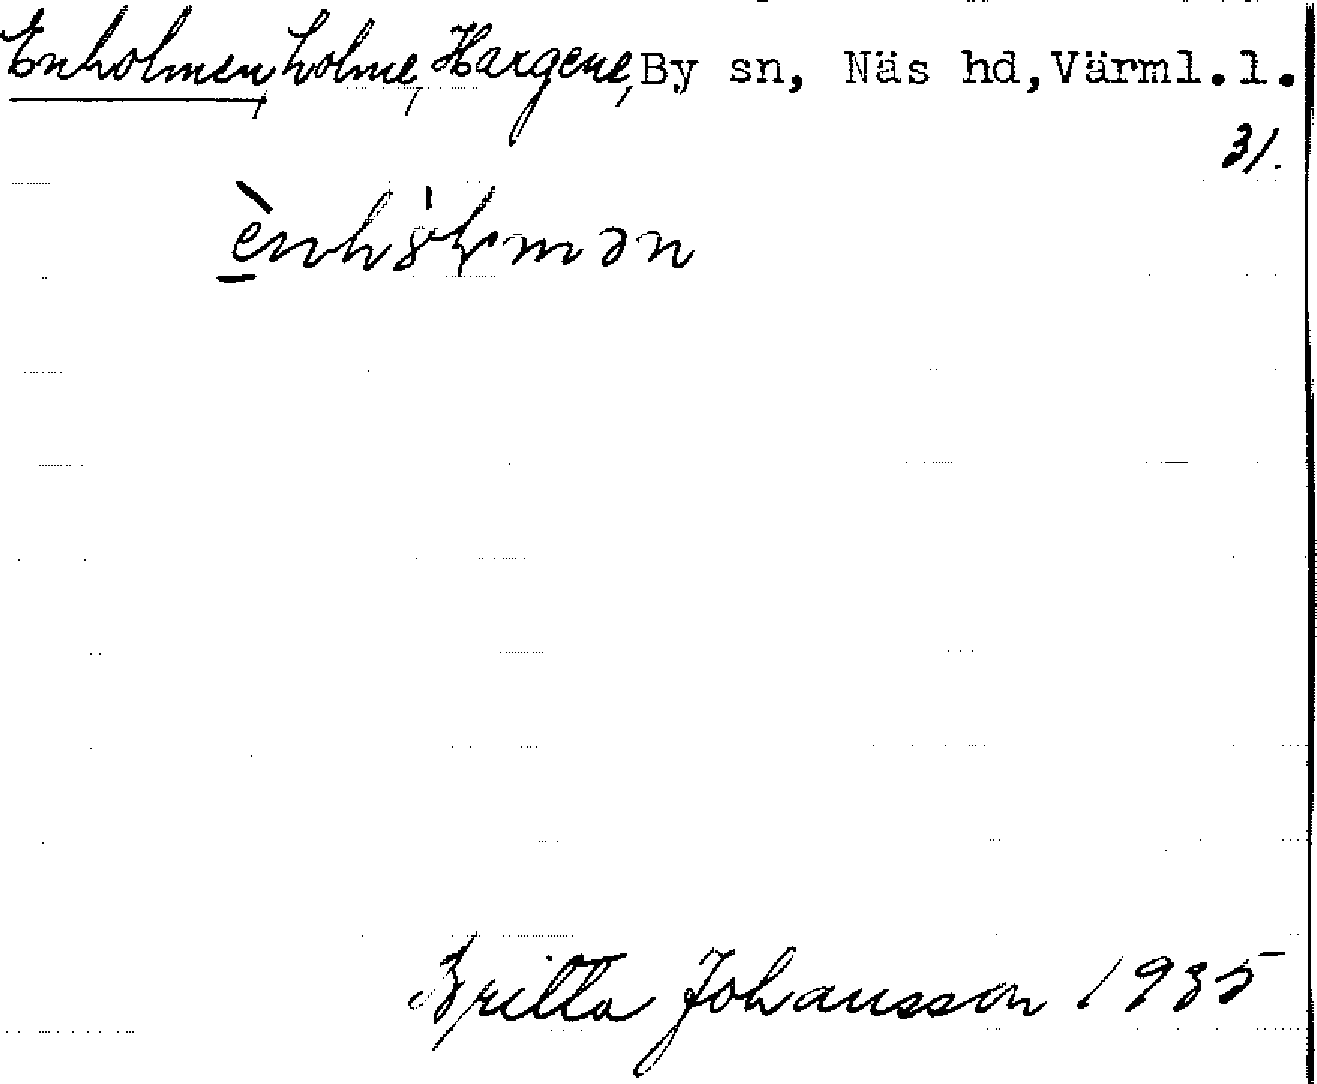 Enholmen, holme, Hargene, By sn, Näs hd, Värml.l.
31.
Britta Johansson 1935